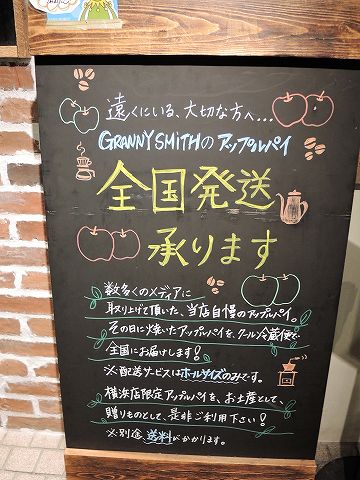 遠くにいる、大切な方へ...
GRANNY SMITHの アップルパイ
全国発送
承ります
数多くのメディアに
取り上げて頂いた、当店自慢のアップルパイ。
その日に焼いたアップルパイを、クール冷蔵便で
全国にお届けします!
※配送サービスはホールサイズのみです。
横浜店限定アップルパイを、お土産として、
贈りものとして、是非ご利用下さい!
※別途、送料がかかります。